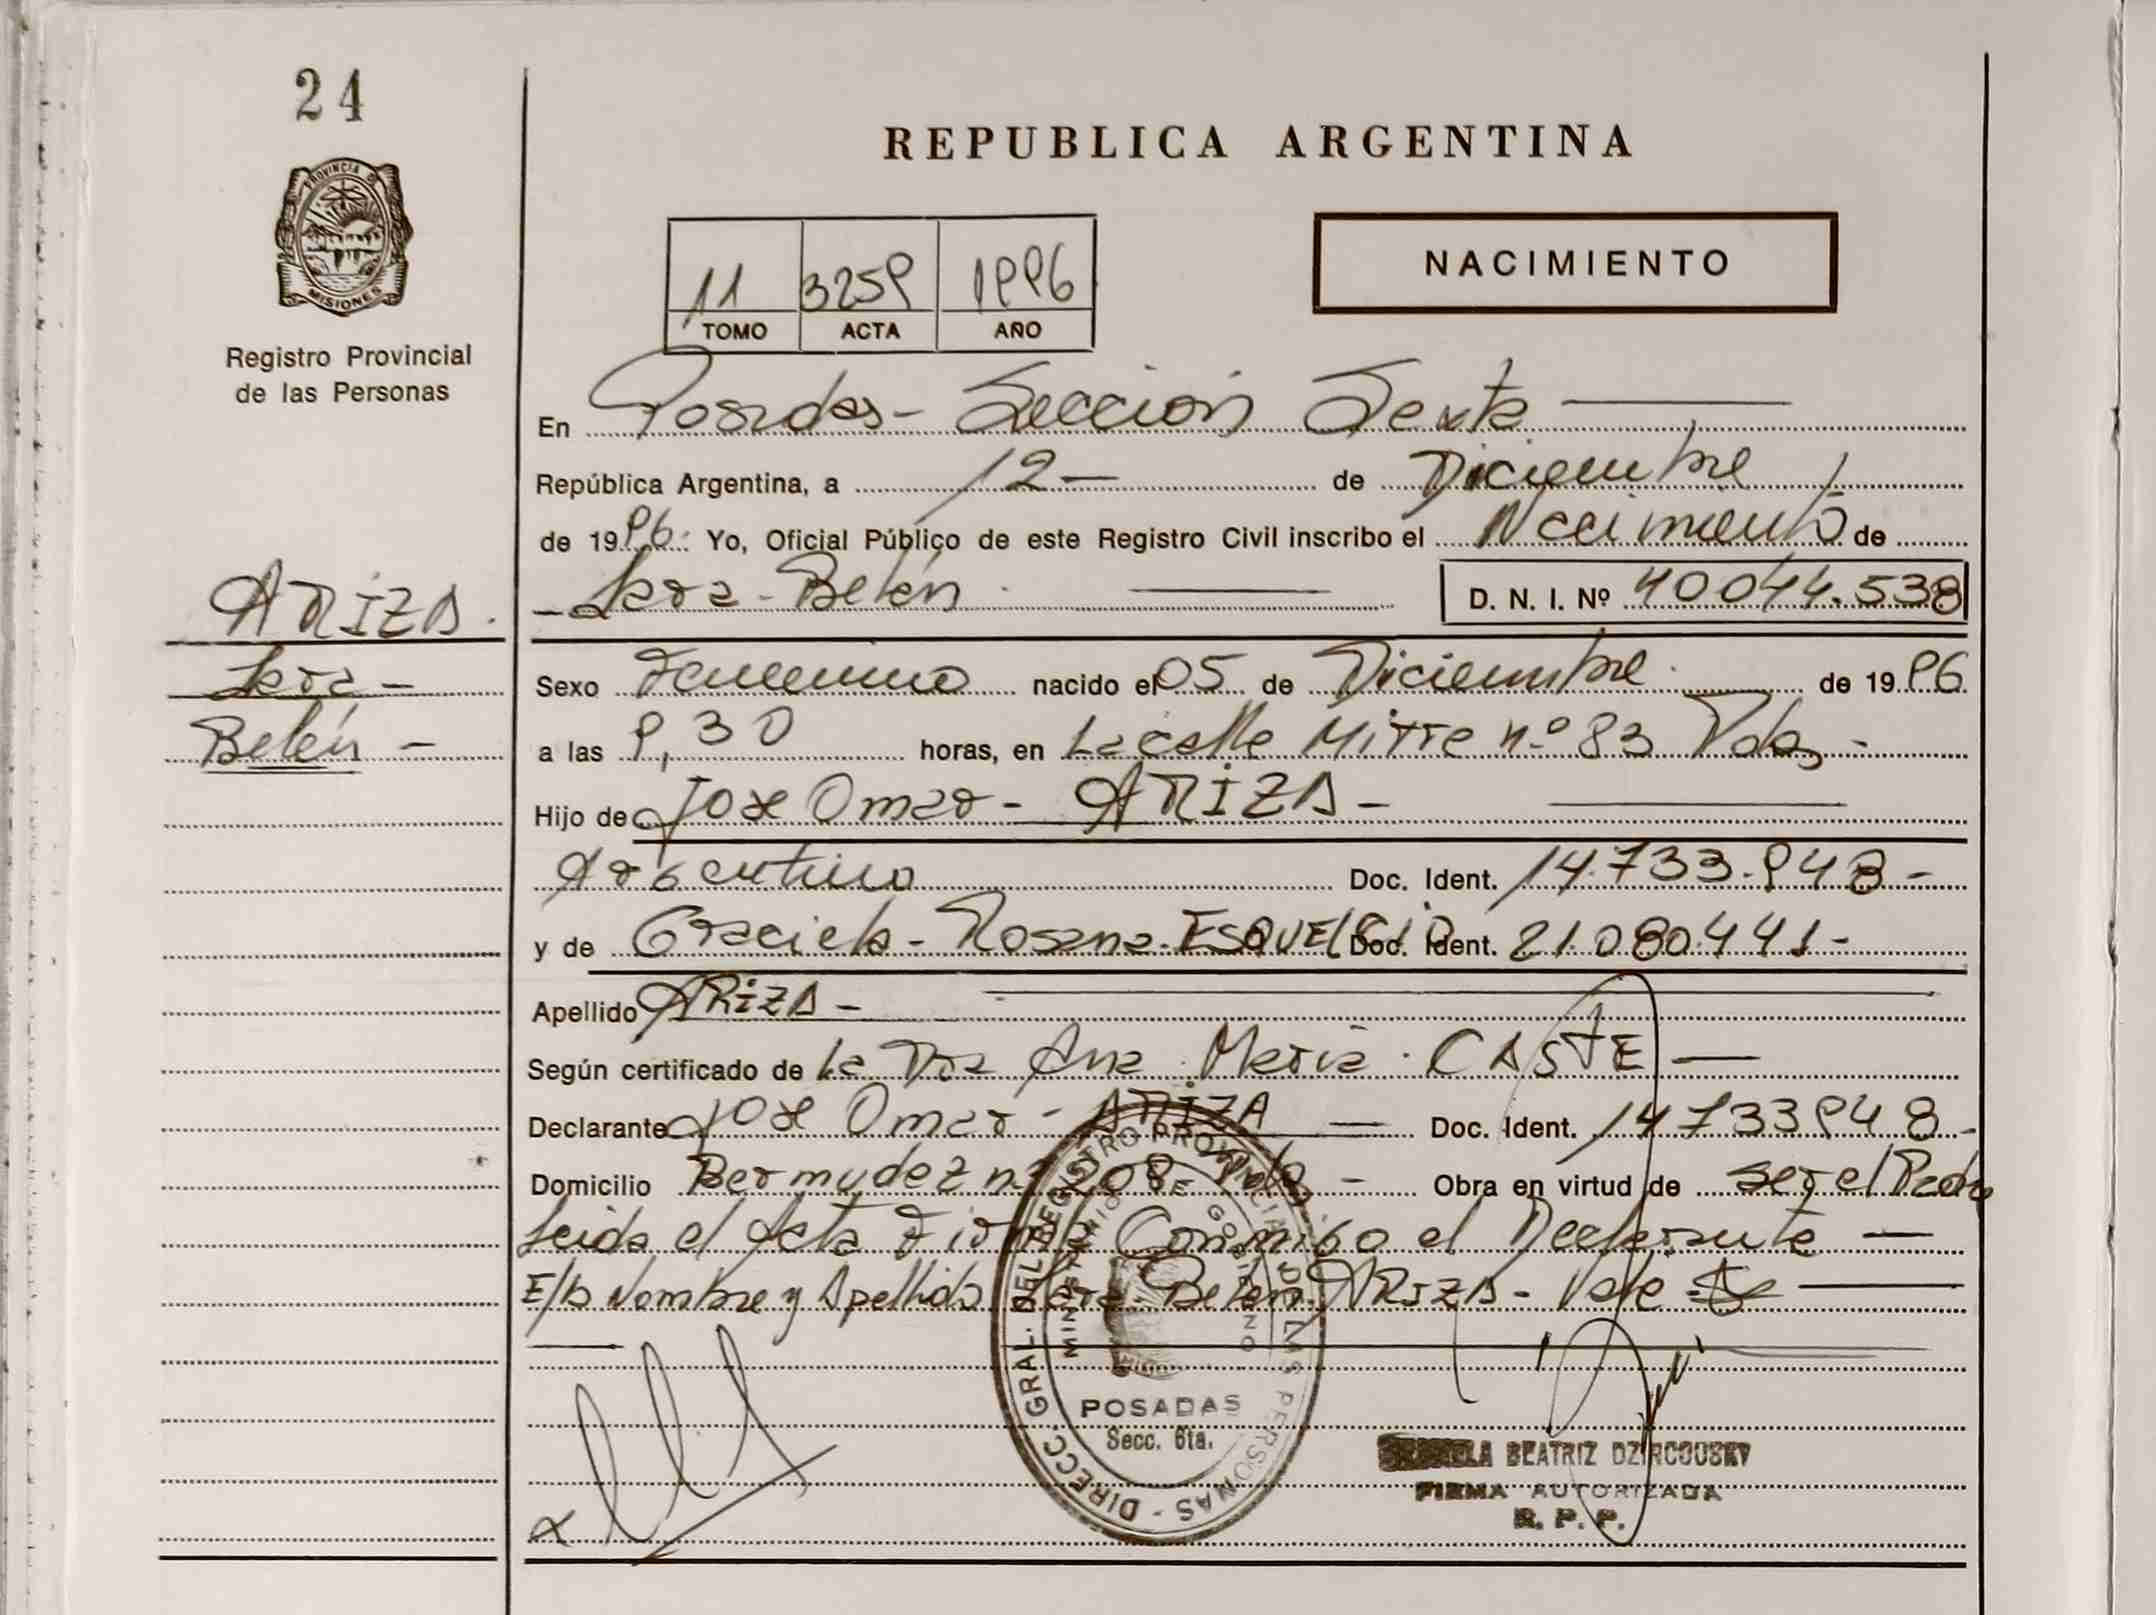 24
PROVINCIA D
MISIONES
Registro Provincial
de las Personas
REPUBLICA ARGENTINA
NACIMIENTO
11 3259 1996
TOMO ACTA AÑO
En Posadas - Sección Sexta
República Argentina, a 12 - de Diciembre
de 1996. Yo, Oficial Público de este Registro Civil inscribo el Nacimiento de
- Sara - Belén D. N. I. Nº 40044.538
ARIZA.
Sara -
Belén -
Sexo Femenino nacido el 05 de Diciembre de 1996
a las 9,30 horas, en La calle Mitre n.º 83 Pdas -
Hijo de José Omar - ARIZA -
Argentino Doc. Ident. 14.733.948 -
y de Graciela - Rosana - ESQUEL Doc. Ident. 21.080.441 -
Apellido ARIZA -
Según certificado de La Dra Ana María CASTE
Declarante José Omar - ARIZA Doc. Ident. 14733948 -
Domicilio Bermudez n.º 208 Pdas - Obra en virtud de ser el Padre
Leida el Acta Firma Conmigo el Declarante
E/L Nombre y Apellido Sara Belén ARIZA - Vale
DIRECC. GRAL. DEL REGISTRO PROVINCIAL DE LAS PERSONAS -
MINISTERIO DE GOBIERNO
POSADAS
Secc. 6ta.
BEATRIZ DZIRCOUSKY
FIRMA AUTORIZADA
R. P. P.